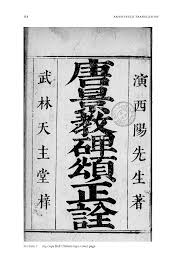 ANNOTATED TRANSLATION
演西陽先生著
唐景教碑頌正詮
武林天主堂梓
cover page